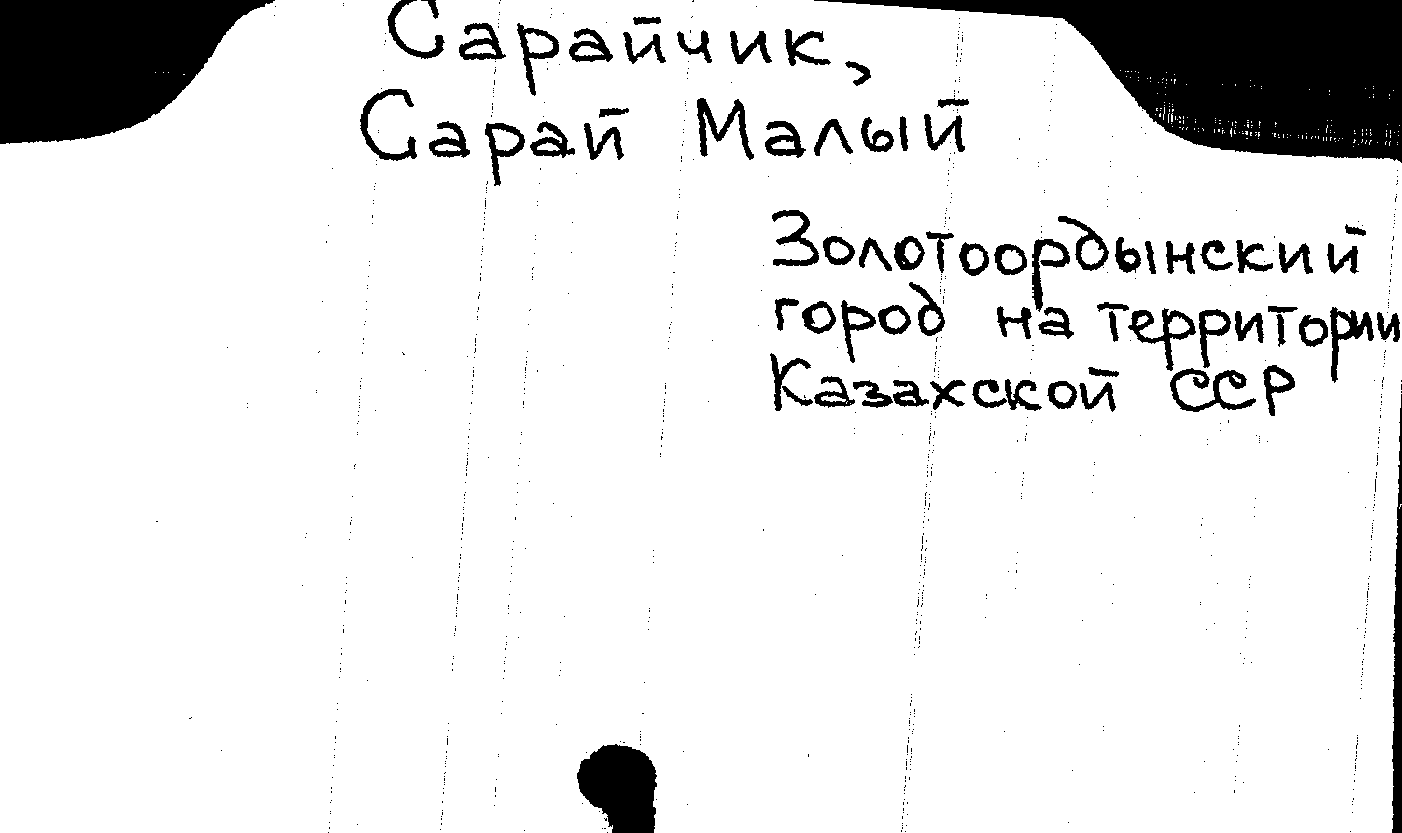 Сарайчик,
Сарай Малый
Золотоордынский
город на территории
Казахской ССР